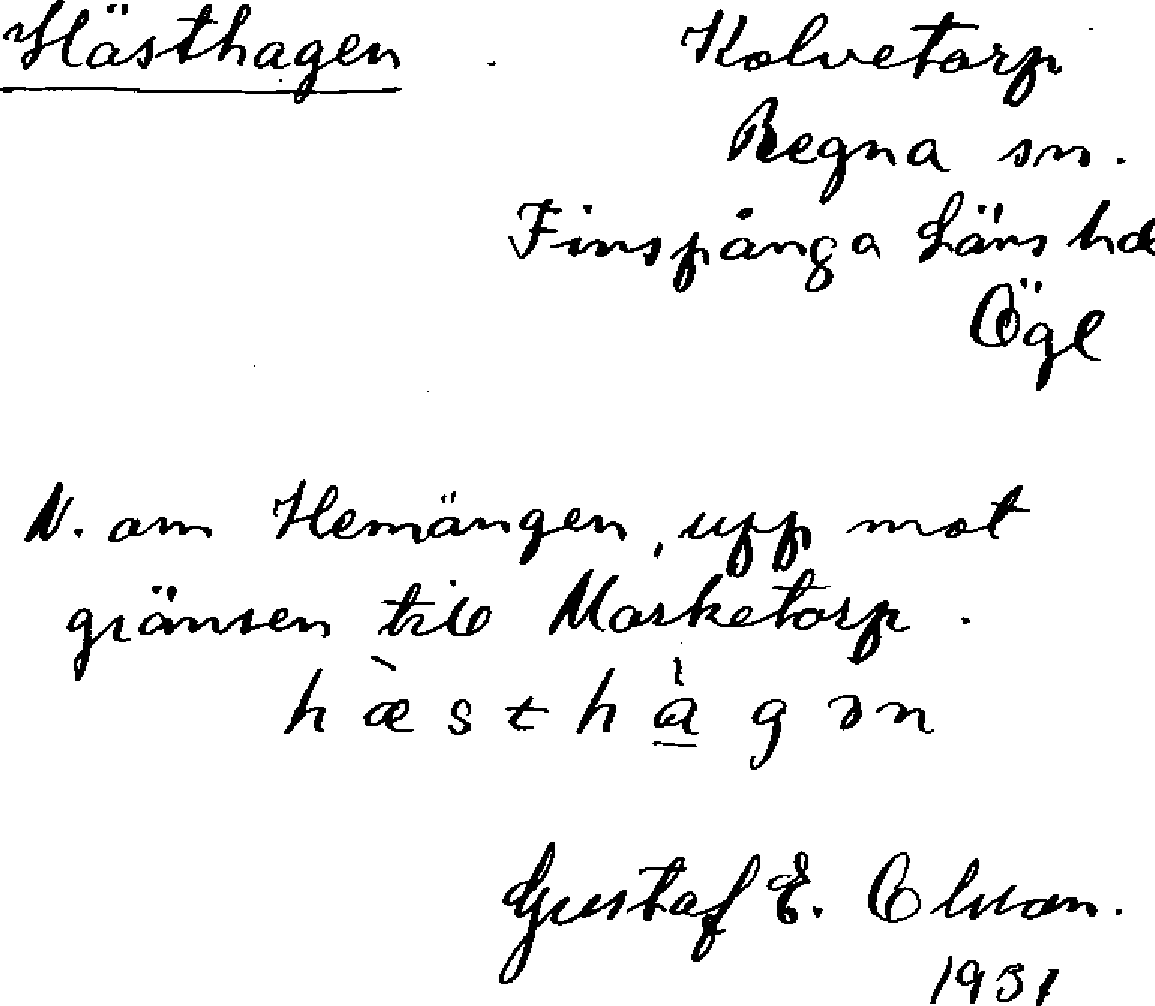 Hästhagen Kolvetorp
Regna sn.
Finspånga läns hd
Ögl
N. om Hemängen, upp mot
gränsen till Marketorp.
hæ̀sthạ̀̍gən
Gustaf E. Olson.
1931